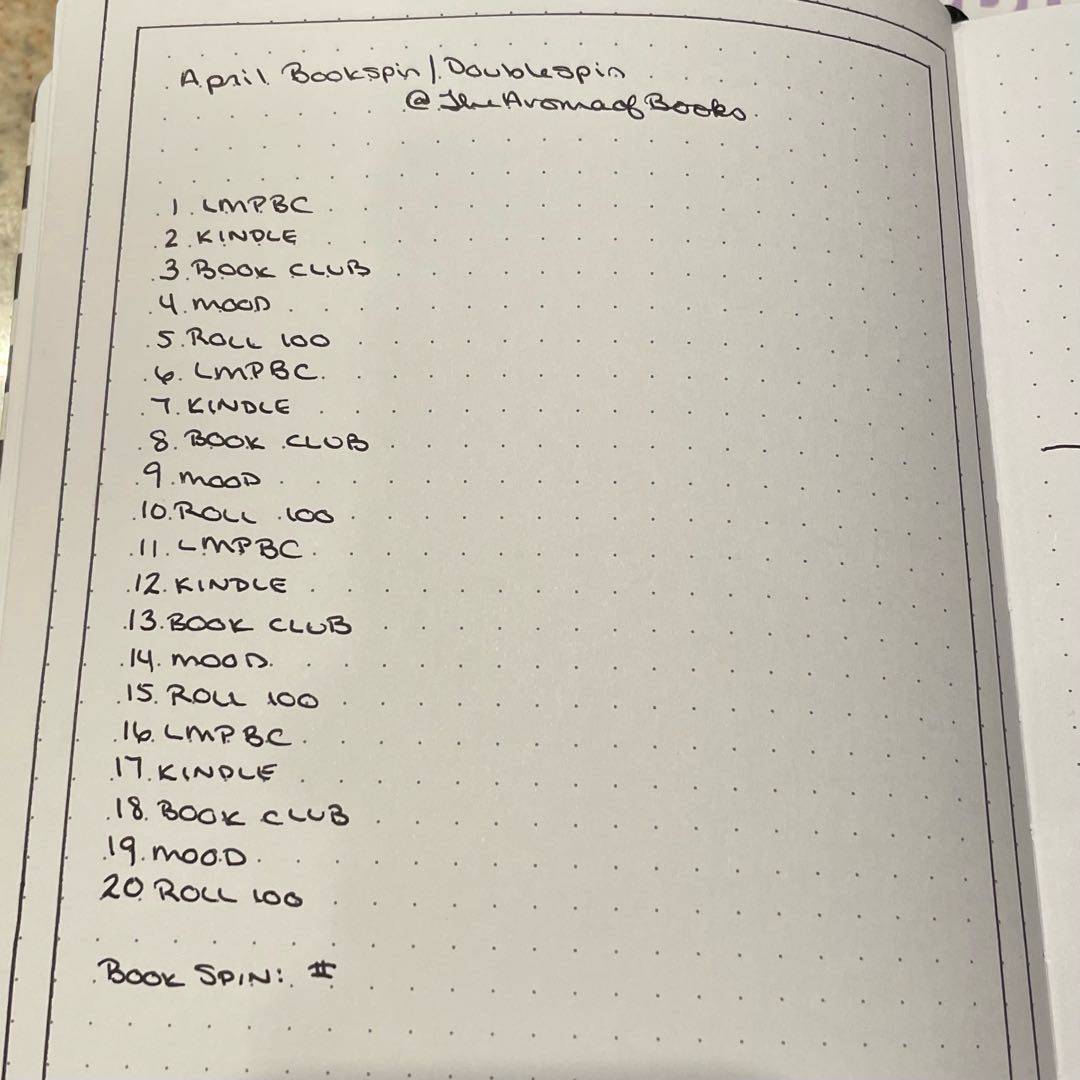 April Bookspin / Doublespin
@TheAromaofBooks
1. LMPBC
2. KINDLE
3. BOOK CLUB
4. MOOD
5. ROLL 100
6. LMPBC
7. KINDLE
8. BOOK CLUB
9. MOOD
10. ROLL 100
11. LMPBC
12. KINDLE
13. BOOK CLUB
14. MOOD
15. ROLL 100
16. LMPBC
17. KINDLE
18. BOOK CLUB
19. MOOD
20. ROLL 100
BOOK SPIN: #